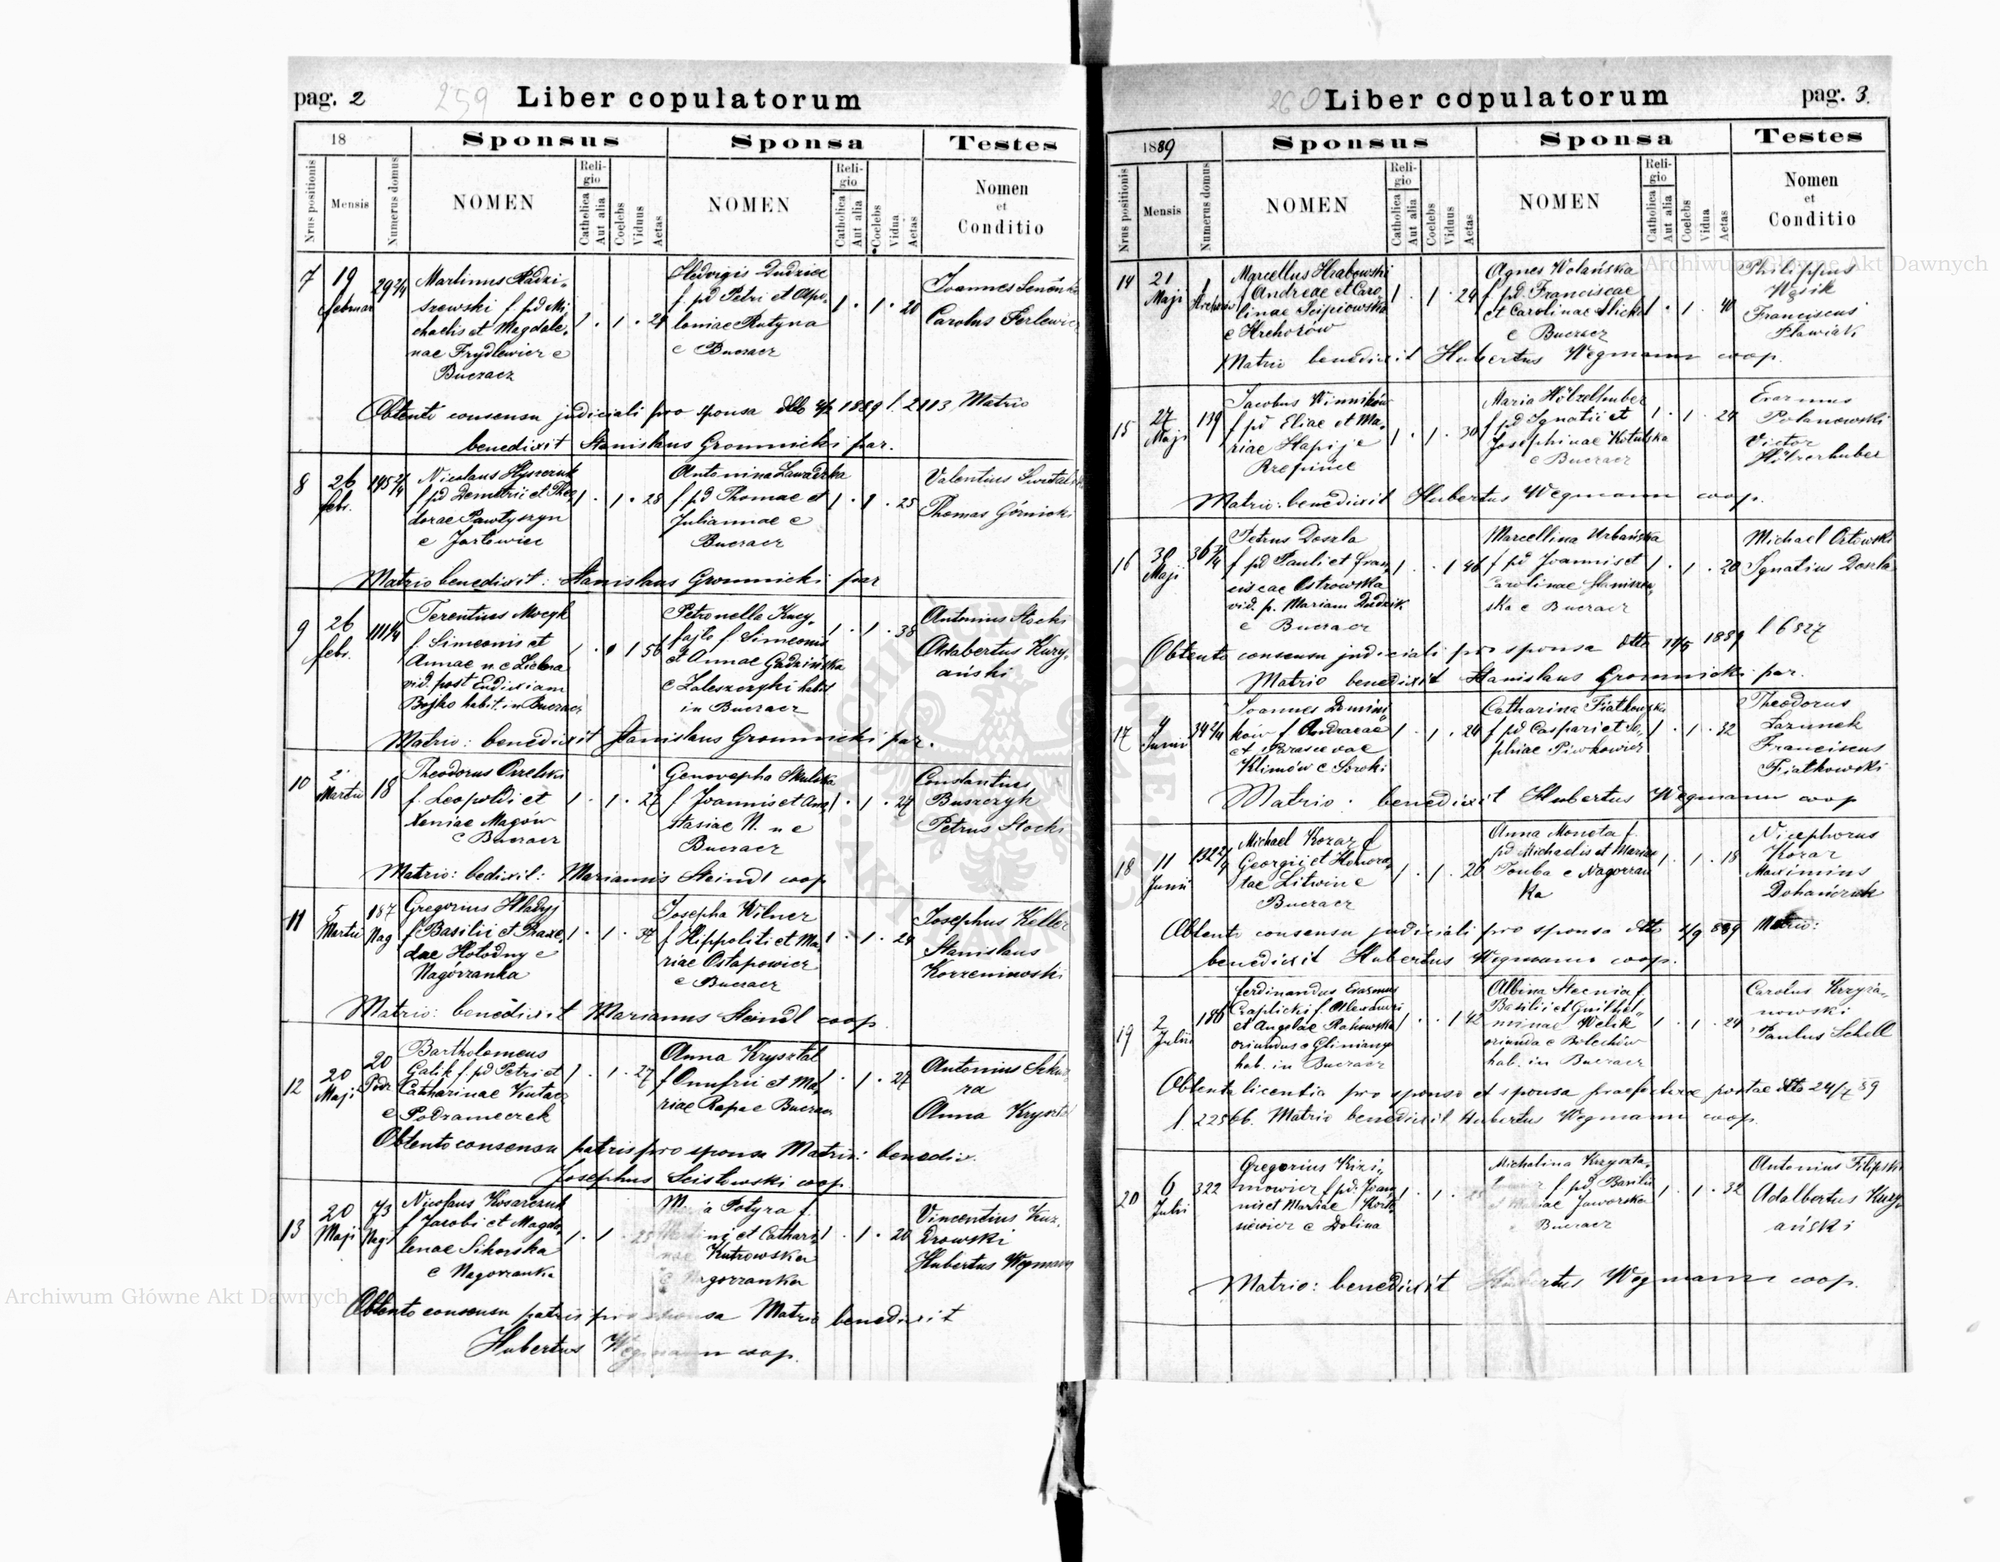 pag. 2
259
Liber copulatorum
18
Sponsus
Sponsa
Testes
Nrus positionis
Mensis
Numerus domus
NOMEN
Religio
Catholica
Aut alia
Coelebs
Viduus
Aetas
NOMEN
Religio
Catholica
Aut alia
Coelebs
Vidua
Aetas
Nomen
et
Conditio
7 19 februar
Martinus Radzi-
szewski f pd Mi
chaelis et Magdale-
nae Frydlewicz e
Buczacz
1 . 1 . 24
Hedvigis Dudzicz
f pd Petri et Apo-
loniae Rutyna
e Buczacz
1 . 1 . 20
Joannes
Carolus
Obtento consensu judiciali pro sponsa 1889 l. 2113 Matrio
benedixit Stanislaus Gromnicki par.
8 26 febr.
Nicolaus Hyszczuk
f pd Demetrii et Theo
dorae Pawłyszyn
e Jarłowiec
1 . 1 . 28
Antonina Zawadzka
f pd Thomae et
Juliannae e
Buczacz
1 . 1 . 25
Valentius
Thomas Górnicki
Matrio benedixit: Stanislaus Gromnicki par
9 26 febr.
Terentius
f. Simeonis et
Annae
vid. post
Bojko habit. in Buczacz
1 . 1 56
Petronella
f Simeonis
et Annae Gudzińska
e Zaleszczyki habit
in Buczacz
1 . 1 . 38
Antonius Stocki
Adabertus Kury-
ański
Matrio: benedixit Stanislaus Gromnicki par.
10 2 Martii 18
Theodorus
f. Leopoldi et
Xeniae Magów
e Buczacz
1 . 1 . 27
Genovepha Skulska
f Joannis et Ana-
stasiae N. n e
Buczacz
1 . 1 . 24
Constantius
Buszczyk
Petrus Stocki
Matrio: bedixit: Marianus Steindl coop
11 5 Martii 187 Nag
Gregorius Hladyj
f Basilii et Praxe-
dae Hołodny e
Nagórzanka
1 . 1 . 34
Josepha Wilner
f Hippoliti et Ma-
riae Ostapowicz
e Buczacz
1 . 1 . 24
Josephus Keller
Stanislaus
Korzeniowski
Matrio: benedixit Marianus Steindl coop
12 20 Maji 20 Podz
Bartholomeus
Galik f. pd Petri et
Catharinae
e Podzameczek
1 . 1 . 27
Anna Krysztal
f Onufrii et Ma-
riae Rapa e Buczacz
1 . 1 . 27
Antonius
ra
Anna
Obtento consensu patris pro sponsa Matrio: benedix.
Josephus Scisłowski coop
13 20 Maji 73 Nag.
Nicolaus Kosarczuk
f Jacobi et Magda-
lenae Sikorska
e Nagorzanka
1 . 1 . 25
Potyra f.
et Cathari-
nae Kutrowska
e Nagorzanka
1 . 1 . 20
Vincentius Kuz-
Drowski
Hubertus Wegmann
Obtento consensu patris pro sponsa Matrio benedixit
Hubertus Wegmann coop.
pag. 3.
260
Liber copulatorum
1889
Sponsus
Sponsa
Testes
Nrus positionis
Mensis
Numerus domus
NOMEN
Religio
Catholica
Aut alia
Coelebs
Viduus
Aetas
NOMEN
Religio
Catholica
Aut alia
Coelebs
Vidua
Aetas
Nomen
et
Conditio
14 21 Maji 1
Marcellus Hrabowski
f. Andreae et Caro-
linae Scipiowska
e Hrehorów
1 . 1 . 24
Agnes Wolańska
f pd. Franciscae
et Carolinae
e Buczacz
1 . 1 . 40
Philippus
Wąsik
Franciscus
Matrio benedixit Hubertus Wegmann coop.
15 27 Maji 139
Jacobus Winników
f pd Eliae et Ma-
riae Hapij e
Rzepińce
1 . 1 . 30
Maria Hölzelhuber
f pd Ignatii et
Josephinae Kotulska
e Buczacz
1 . 1 . 24
Erasmus
Polanowski
Victor
Matrio: benedixit Hubertus Wegmann coop.
16 30 Maji
Petrus Doszla
f pd Pauli et Fran-
ciscae Ostrowska
vid. p. Mariam Dudzik
e Buczacz
1 . . 1 46
Marcellina Urbańska
f pd Joannis et
Carolinae
ska e Buczacz
1 . 1 . 20
Michael Orłowski
Ignatius Doszla
Obtento consensu judiciali pro sponsa dtto 1889 l 6827
Matrio benedixit Stanislaus Gromnicki par.
17 4 Junii
Joannes
ków f Andreae
et Parascevae
Klimów e Soroki
1 . 1 . 24
Catharina Fiatkowska
f pd Caspari et So-
phiae Piwkowicz
1 . 1 . 32
Theodorus
Łazunek
Franciscus
Fiatkowski
Matrio. benedixit Hubertus Wegmann coop
18 11 Junii
Michael Kozar f
Georgii et Honora-
tae Litwin e
Buczacz
1 . 1 . 26
Anna Moneta f.
pd Michaelis et Mariae
e Nagorzan
ka
1 . 1 . 18
Nicephorus
Kozar
Maximius
Dohańczuk
Obtento consensu judiciali pro sponsa dtto 889 Matrio:
benedixit Hubertus Wegmann coop.
19 2 Julii 186
Ferdinandus Erasmus
Czaplicki f. Alexandri
et Angelae Rakowska
oriundus e Gliniany
hab. in Buczacz
1 . . 1 42
Albina Stecnia f.
Basilii et Guilhel-
minae Welik
oriunda e Bolechów
hab. in Buczacz
1 . 1 . 24
Carolus Krzyża-
nowski
Paulus Schell
Obtenta licentia pro sponso et sponsa praefecturae postae dtto 24/7 89
l. 22566. Matrio benedixit Hubertus Wegmann coop.
20 6 Julii 322
Gregorius Kizi-
mowicz f pd. Joan-
nis et Mariae Kort-
niewicz e Dolina
1 . 1 .
Michalina Kryszta-
f pd. Basilii
et Mariae Jaworska
e Buczacz
1 . 1 . 32
Antonius Filipski
Adalbertus Kury-
ański
Matrio: benedixit Hubertus Wegmann coop.
Archiwum Główne Akt Dawnych
Archiwum Główne Akt Dawnych